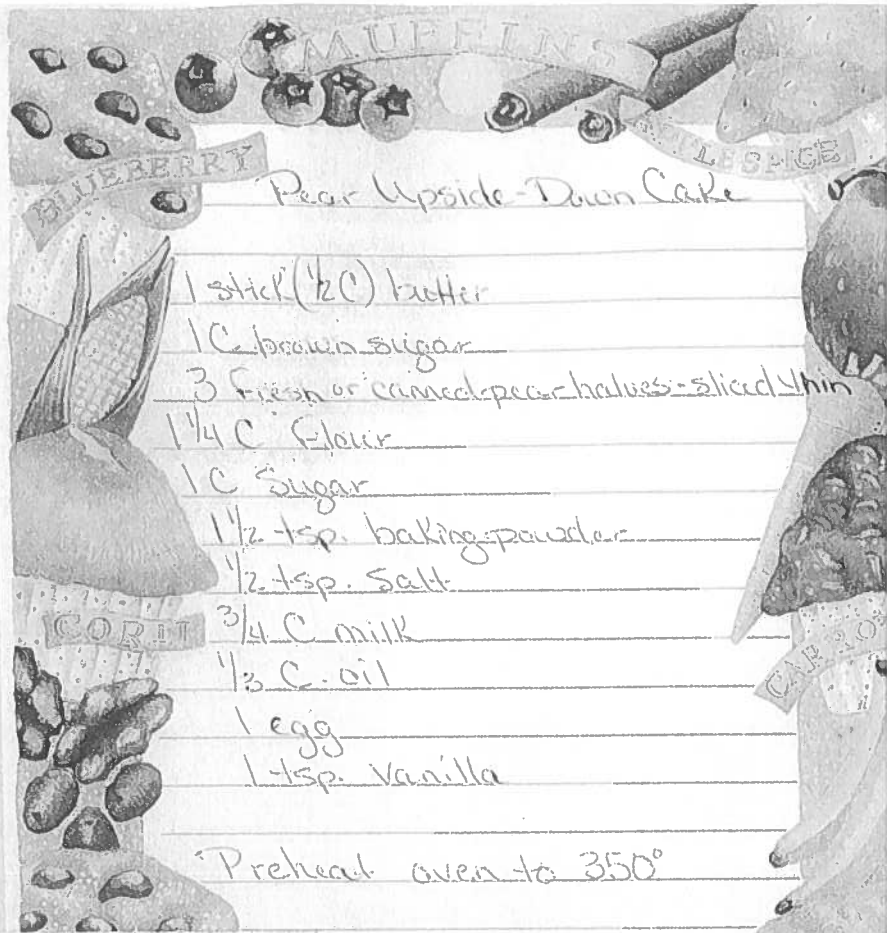 MUFFINS
BLUEBERRY
Pear Upside-Down Cake
1 stick (1/2 C) butter
1 C. brown sugar
3 fresh or canned pear halves - sliced thin
1 1/4 C flour
1 C Sugar
1 1/2 tsp. baking powder
1/2 tsp. Salt
CORN
3/4 C milk
1/3 C. oil
1 egg
1 tsp. vanilla
Preheat oven to 350°